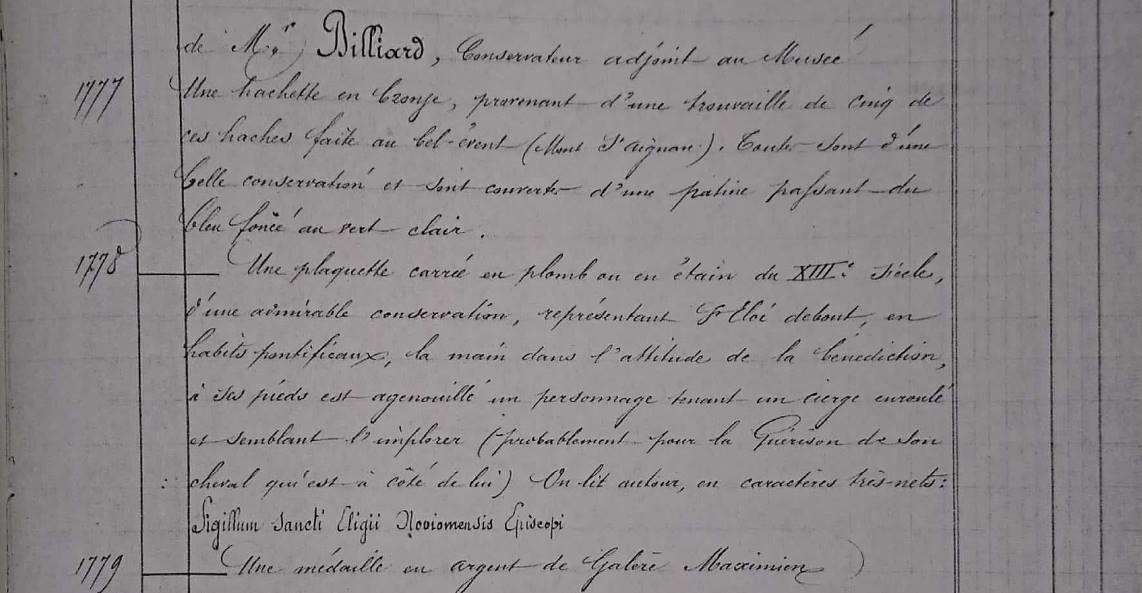 de Mr Billiard, Conservateur adjoint au Musée
1777 Une hachette en bronze, provenant d'une trouvaille de cinq de
ces haches faite au bel-évent (Mont St Aignan). Toutes sont d'une
belle conservation et sont couvertes d'une patine passant du
bleu foncé au vert clair.
1778 Une plaquette carrée en plomb ou en étain du XIIIe siècle,
d'une admirable conservation, représentant St Eloi debout, en
habits pontificaux, la main dans l'attitude de la bénédiction,
à ses pieds est agenouillé un personnage tenant un cierge enroulé
et semblant l'implorer (probablement pour la Guérison de son
cheval qui est à côté de lui) On lit autour, en caractères très-nets:
Sigillum Sancti Eligii Noviomensis Episcopi
1779 Une médaille en argent de Galère Maximien